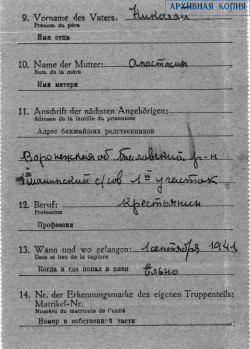 АРХИВНАЯ КОПИЯ
9. Vorname des Vaters: Николай
Prénom du père
Имя отца
10. Name der Mutter: Анастасия
Nom de la mère
Имя матери
11. Anschrift der nächsten Angehörigen:
Adresse de la famille du prisonnier
Адрес ближайших родственников
Воронежская об р-н
с/сов 1й участок
12. Beruf: Крестьянин
Profession
Профессия
13. Wann und wo gefangen: 1 сентября 1941
Date et lieu de la capture
Когда и где попал в плен Ельно
14. Nr. der Erkennungsmarke des eigenen Truppenteils:
Matrikel-Nr.
Numéro du matricule de l'unité
Номер в собственной части